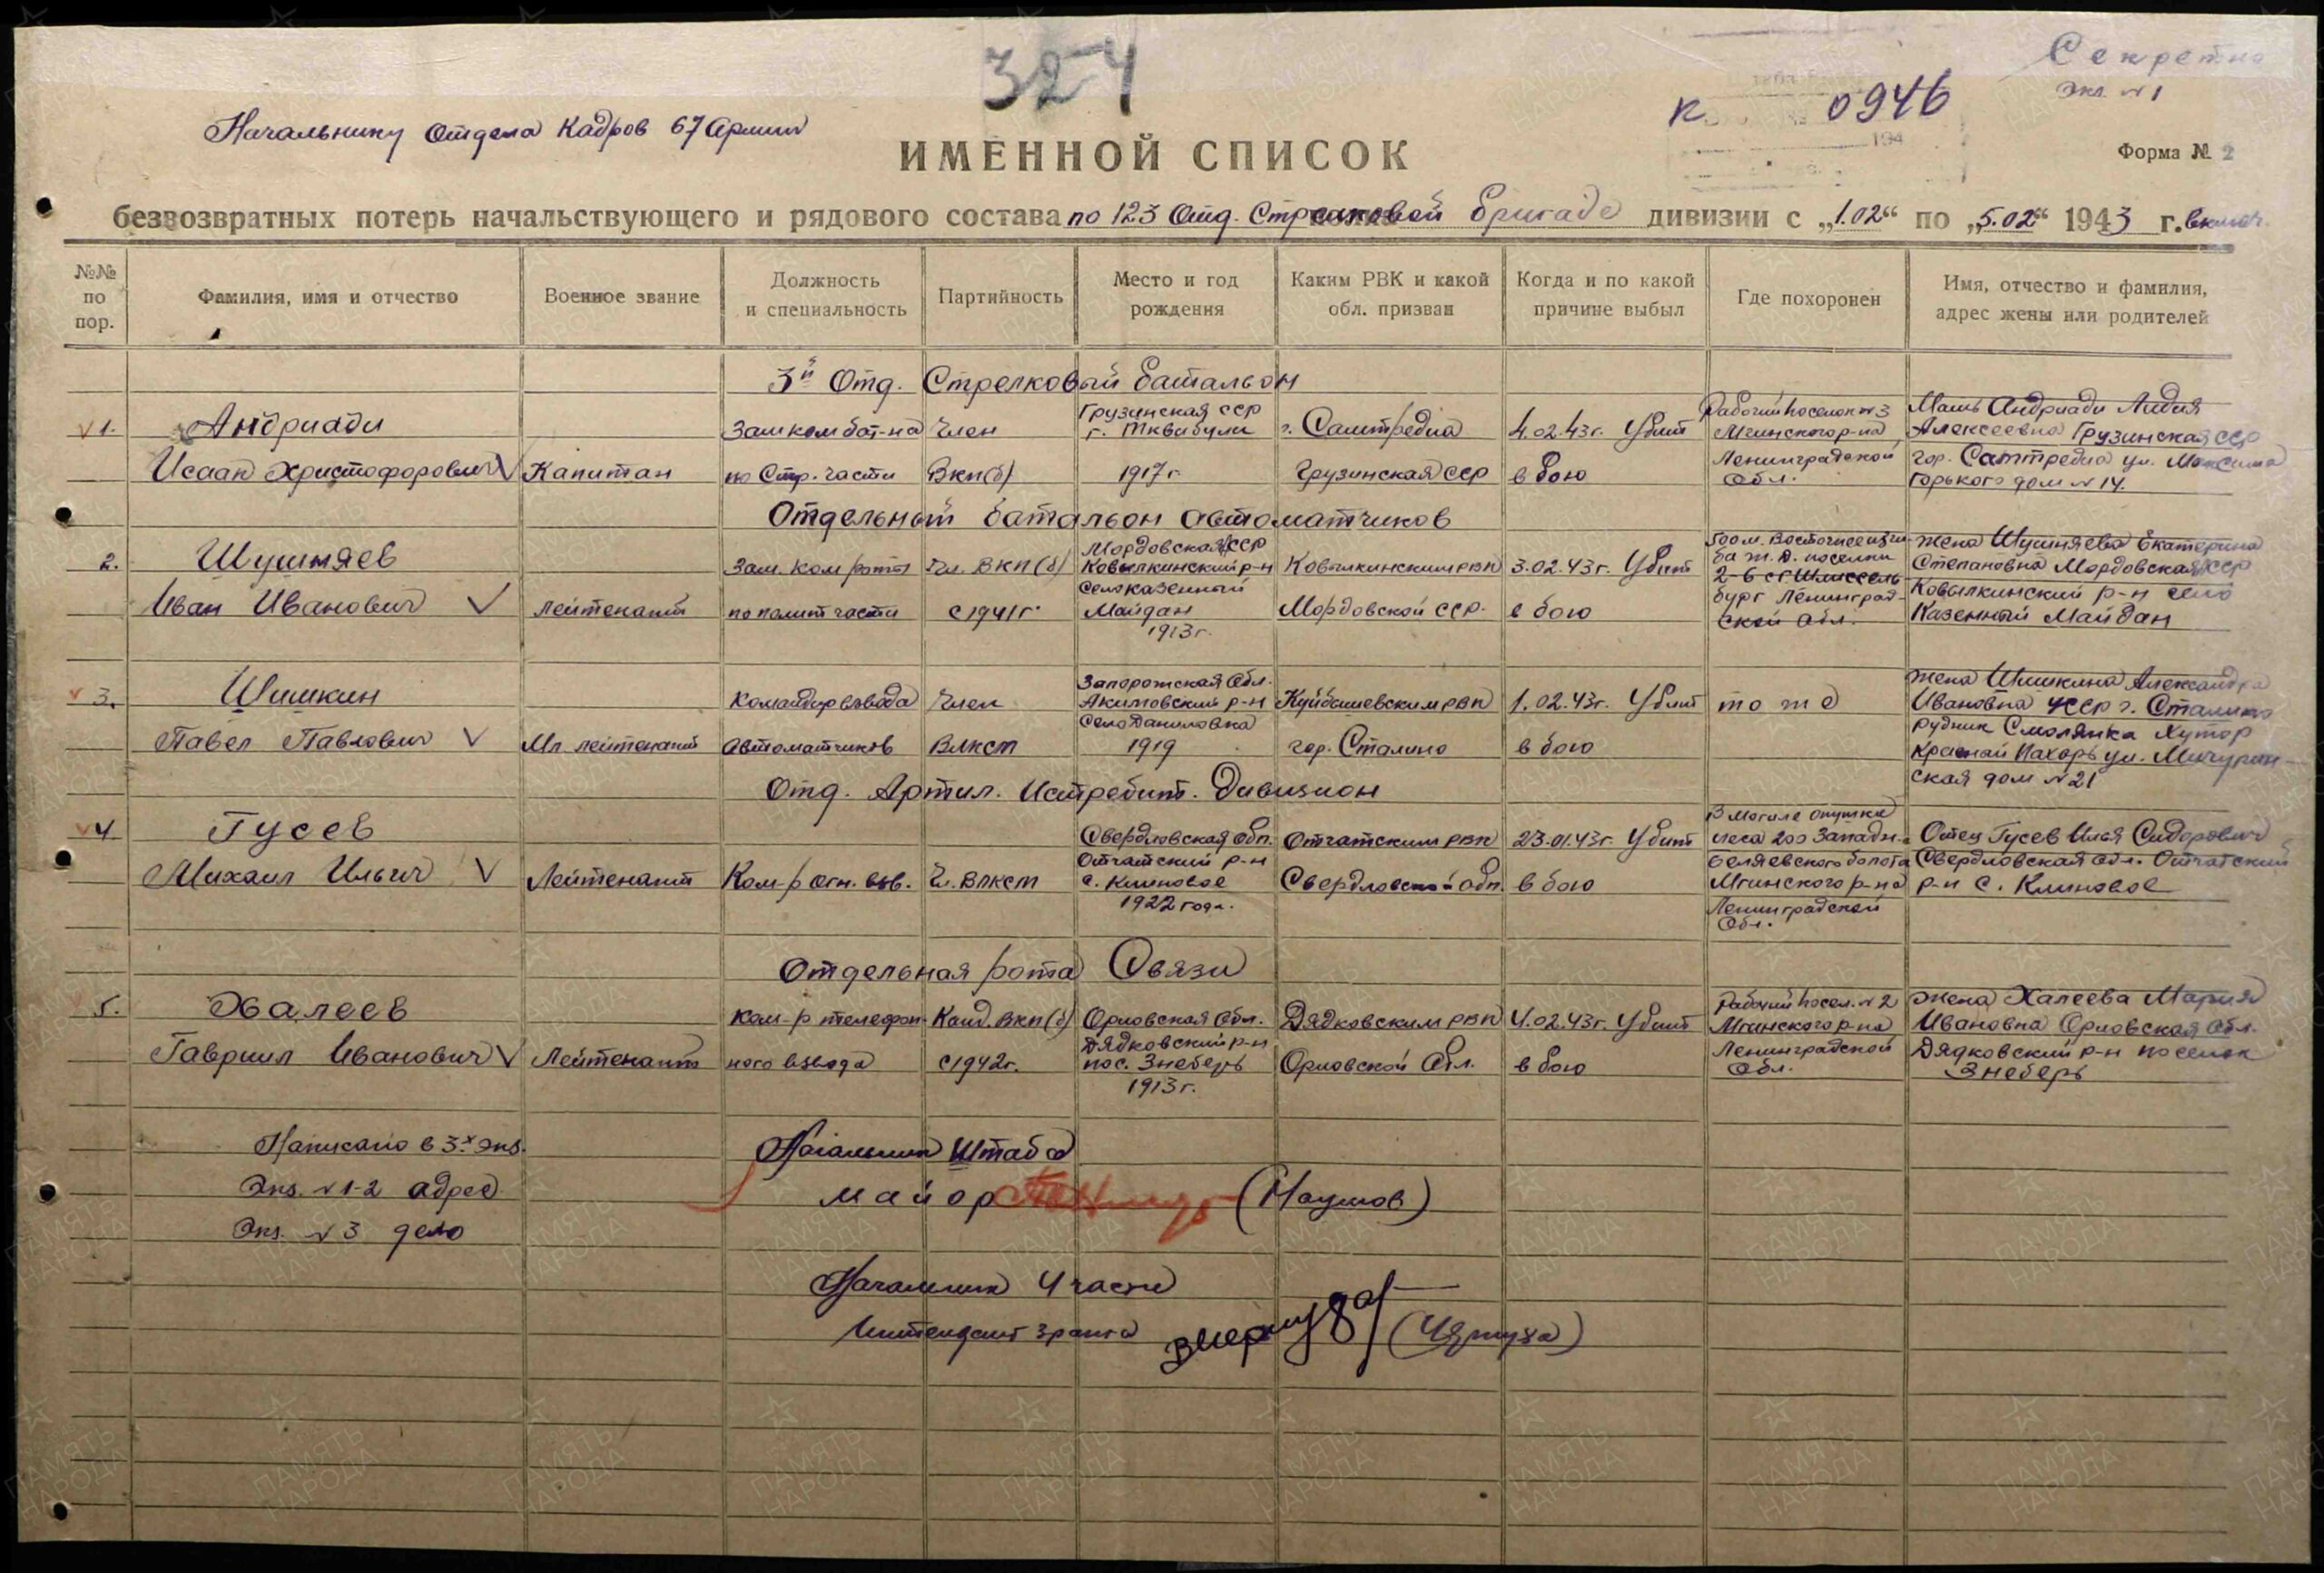 324
Секретно
Экз. №1
К 0946
Начальнику Отдела Кадров 67 Армии
ИМЕННОЙ СПИСОК
Форма № 2
безвозвратных потерь начальствующего и рядового состава по 123 Отд. Стрелковой бригаде дивизии с „1.02“ по „5.02“ 1943 г. включ.
№№ по пор.
Фамилия, имя и отчество
Военное звание
Должность и специальность
Партийность
Место и год рождения
Каким РВК и какой обл. призван
Когда и по какой причине выбыл
Где похоронен
Имя, отчество и фамилия, адрес жены или родителей
3й Отд. Стрелковый батальон
1.
Андриади
Исаак Христофорович
Капитан
Зам ком бат-на
по Стр. части
Член
ВКП(б)
Грузинская ССР
г. Тквибули
1917г
г. Самтредиа
Грузинская ССР
4.02.43г. Убит
в бою
Рабочий поселок №3
Мгинского р-на
Ленинградской
Обл.
Мать Андриади Лидия
Алексеевна Грузинская ССР
гор. Самтредиа ул. Максима
Горького дом №14.
Отдельный батальон автоматчиков
2.
Иван Иванович
Лейтенант
Зам. Ком роты
по полит части
Чл. ВКП(б)
с 1941г.
Мордовская ССР
Ковылкинский р-н
Село Казенный
Майдан
1913г.
Ковылкинским РВК
Мордовской ССР.
3.02.43г. Убит
в бою
500 м. Восточнее изги-
ба ж.д. поселки
2-6 с г. Шлиссель-
бург Ленинград-
ской обл.
Жена Екатерина
Степановна Мордовская ССР
Ковылкинский р-н село
Казенный Майдан
3.
Шишкин
Павел Павлович
Мл лейтенант
Командир взвода
Автоматчиков
Член
ВЛКСМ
Запорожская Обл.
Акимовский р-н
Село Даниловка
1919
Куйбышевским РВК
гор. Сталино
1.02.43г. Убит
в бою
то же
Жена Шишкина Александра
Ивановна УССР г. Сталино
рудник Смолянка Хутор
Красный Пахарь ул. Мичурин-
ская дом №21
Отд. Артил. Истребит. Дивизион
4
Гусев
Михаил Ильич
Лейтенант
Ком-р огн. взв.
Ч. ВЛКСМ
Свердловская обл.
Отчатский р-н
с. Клиновое
1922 года.
Отчатским РВК
Свердловской обл.
23.01.43г. Убит
в бою
В могиле опушка
леса 200 Западн.
Беляевского болота
Мгинского р-на
Ленинградской
Обл.
Отец Гусев Илья Сидорович
Свердловская обл. Отчатский
р-н с. Клиновое
Отдельная рота Связи
5.
Халеев
Гавриил Иванович
Лейтенант
Ком-р телефон-
ного взвода
Канд. ВКП(б)
с 1942г.
Орловская Обл.
Дядковский р-н
пос. Знеберь
1913г.
Дядковским РВК
Орловской Обл.
4.02.43г. Убит
в бою
Рабочий посел. №2
Мгинского р-на
Ленинградской
Обл.
Жена Халеева Мария
Ивановна Орловская Обл.
Дядковский р-н поселок
Знеберь
Написано в 3х экз.
Экз. №1-2 адрес
Экз. №3 дело
Начальник Штаба
майор (Наумов)
Начальник 4 части
Интендант 3 ранга
ПАМЯТЬ НАРОДА